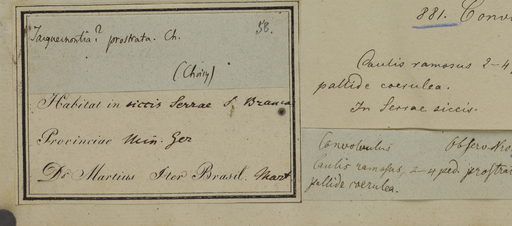 Jacquemontia? prostrata. Ch.
58.
(Choisy)
Habitat in siccis Serrae S. Branca
Provinciae Min. Ger
Dr Martius Iter Brasil. Mart
881. Convo
Caulis ramosus 2-4
pallide coerulea.
In Serrae siccis.
Convolvulus Observ. No.
Caulis ramosus, 2-4 ped. prostra
pallide coerulea.